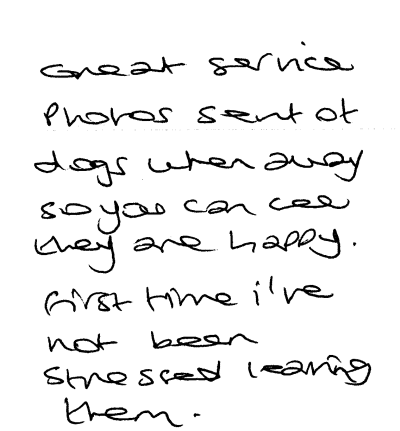 Great service
Photos sent of
dogs when away
so you can see
they are happy.
First time i've
not been
stressed leaving
them.